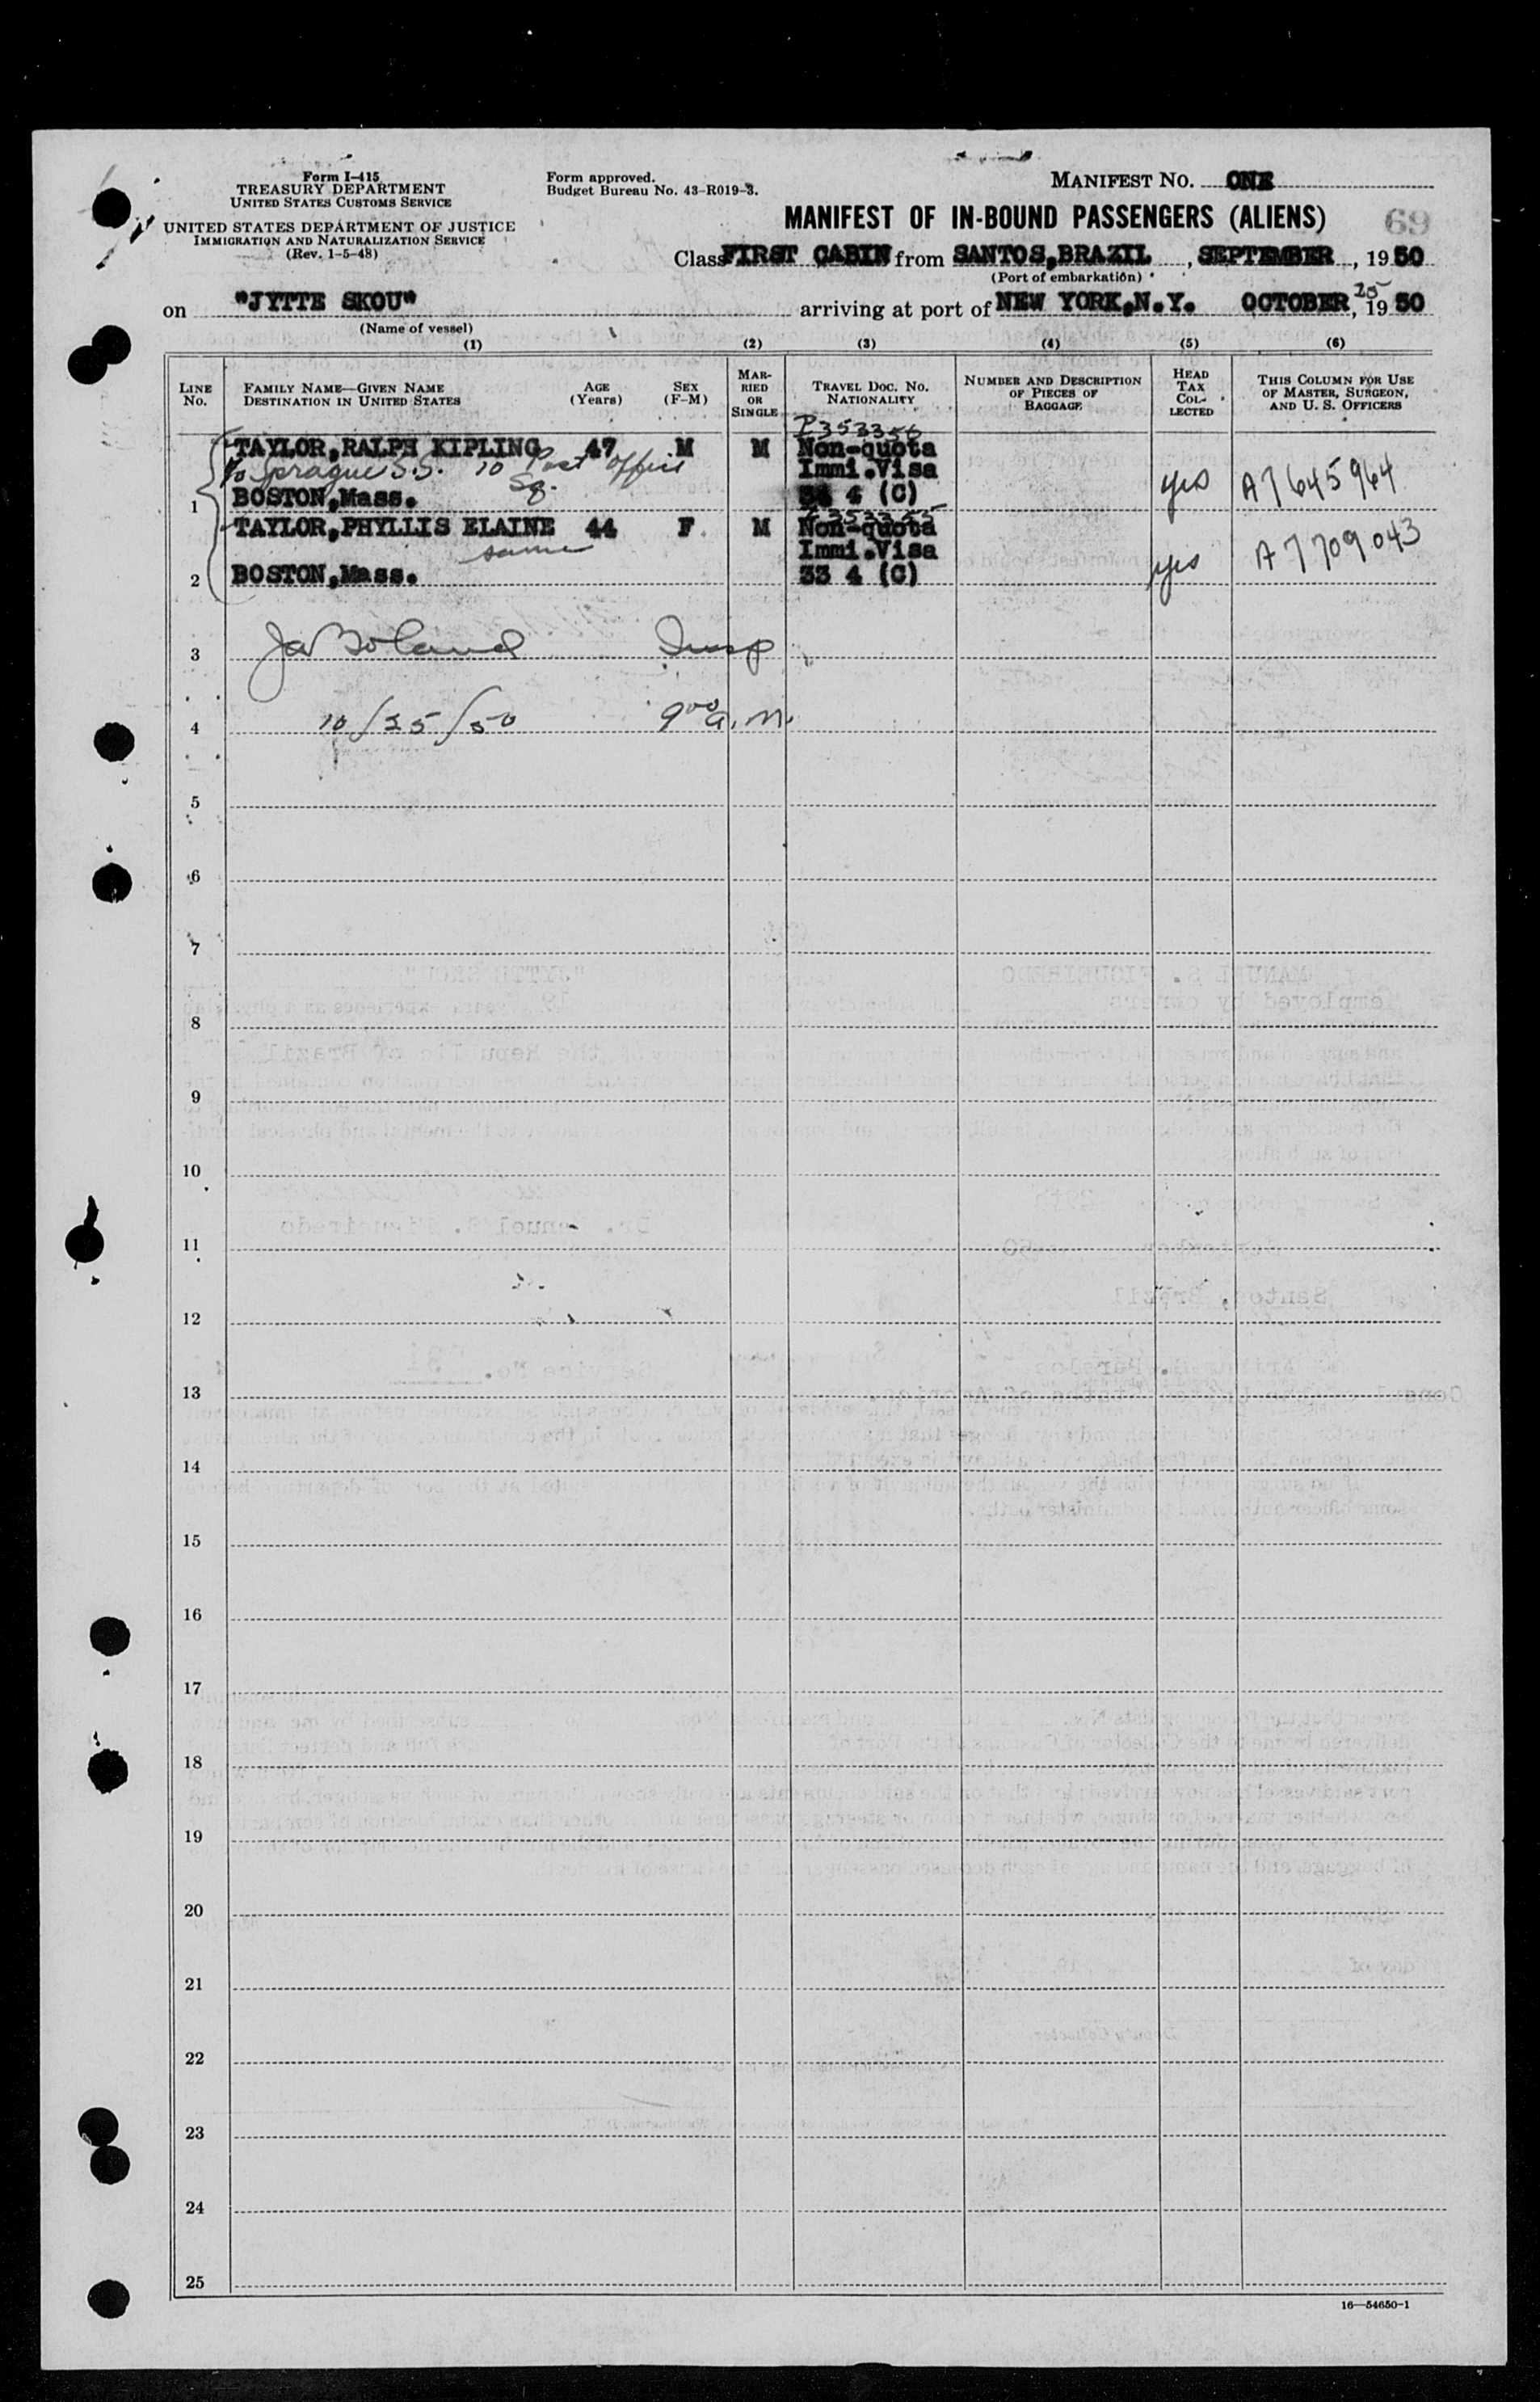 Form I-415
TREASURY DEPARTMENT
UNITED STATES CUSTOMS SERVICE
UNITED STATES DEPARTMENT OF JUSTICE
IMMIGRATION AND NATURALIZATION SERVICE
(Rev. 1-5-48)
Form approved.
Budget Bureau No. 43-R019-3.
MANIFEST NO. ONE
MANIFEST OF IN-BOUND PASSENGERS (ALIENS) 69
Class FIRST CABIN from SANTOS, BRAZIL, SEPTEMBER, 1950
(Port of embarkation)
on "JYTTE SKOU" arriving at port of NEW YORK, N.Y. OCTOBER 25, 1950
(Name of vessel)
(1) (2) (3) (4) (5) (6)
LINE No.
FAMILY NAME—GIVEN NAME
DESTINATION IN UNITED STATES
AGE (Years)
SEX (F-M)
MARRIED OR SINGLE
TRAVEL DOC. NO. NATIONALITY
NUMBER AND DESCRIPTION OF PIECES OF BAGGAGE
HEAD TAX COLLECTED
THIS COLUMN FOR USE OF MASTER, SURGEON, AND U. S. OFFICERS
P353356
TAYLOR, RALPH KIPLING 47 M M Non-quota
Sprague S.S. 10 Post Office Immi.Visa
Sq.
1 BOSTON, Mass. 4 (C) yes A7645964
TAYLOR, PHYLLIS ELAINE 44 F M Non-quota
same Immi.Visa
2 BOSTON, Mass. 33 4 (C) yes A7709043
3 Insp
4 10/25/50 9 00 a.m.
5
6
7
8
9
10
11
12
13
14
15
16
17
18
19
20
21
22
23
24
25
16—54650-1